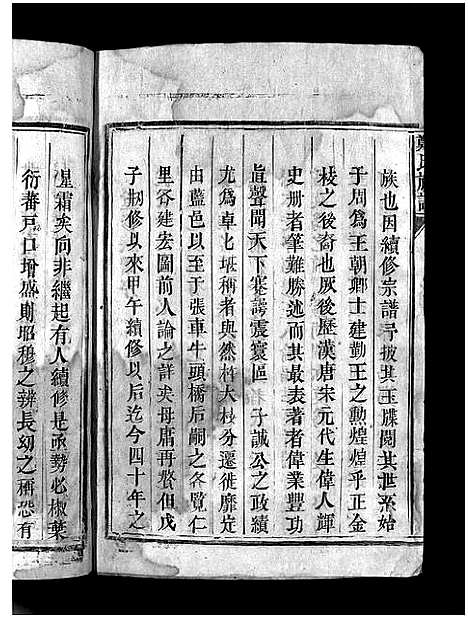 鄭氏族譜
族也因續修宗譜予披其玉牒閱其世系始
于周爲王朝卿士建勤王之勳煌煌乎正金
枝之後裔也厥後歷漢唐宋元代生偉人輝
史册者筆難勝述而其最表著者偉業豐功
眞聲聞天下蹇諤震寰區子誠公之政績
尤爲卓卓堪稱者與然枝大枝分遷徙靡定
由藍邑以至于張車牛頭橋后嗣之各覽仁
里各建宏圖前人論之詳矣毋庸再贅但戊
子剏修以來甲午續修以后迄今四十年之
星霜矣向非繼起有人續修是亟勢必椒葉
衍蕃戸口增盛則昭穆之辨長幼之稱恐有